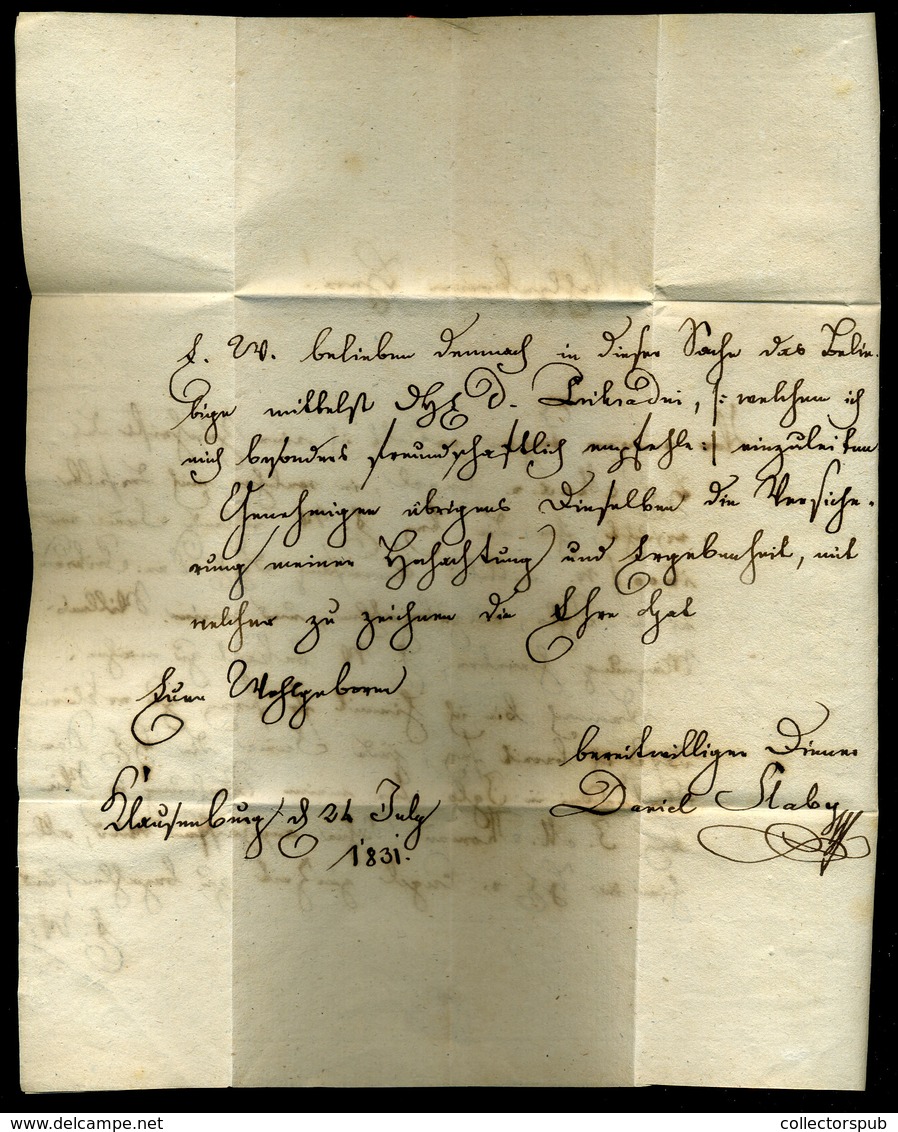 E. W. belieben demnach in dieser Sache das Belie-
bige mittelst d. , /: welchem ich
mich besonders freundschaftlich empfehle :/ einzuleiten
Genehmigen übrigens Dieselben die Versiche-
rung meiner Hochachtung und Ergebenheit, mit
welcher zu zeichnen die Ehre hat
Euer Wohlgeboren
bereitwilliger Diener
Klausenburg d 24 July
Daniel Slaby
1831.
collectorspub